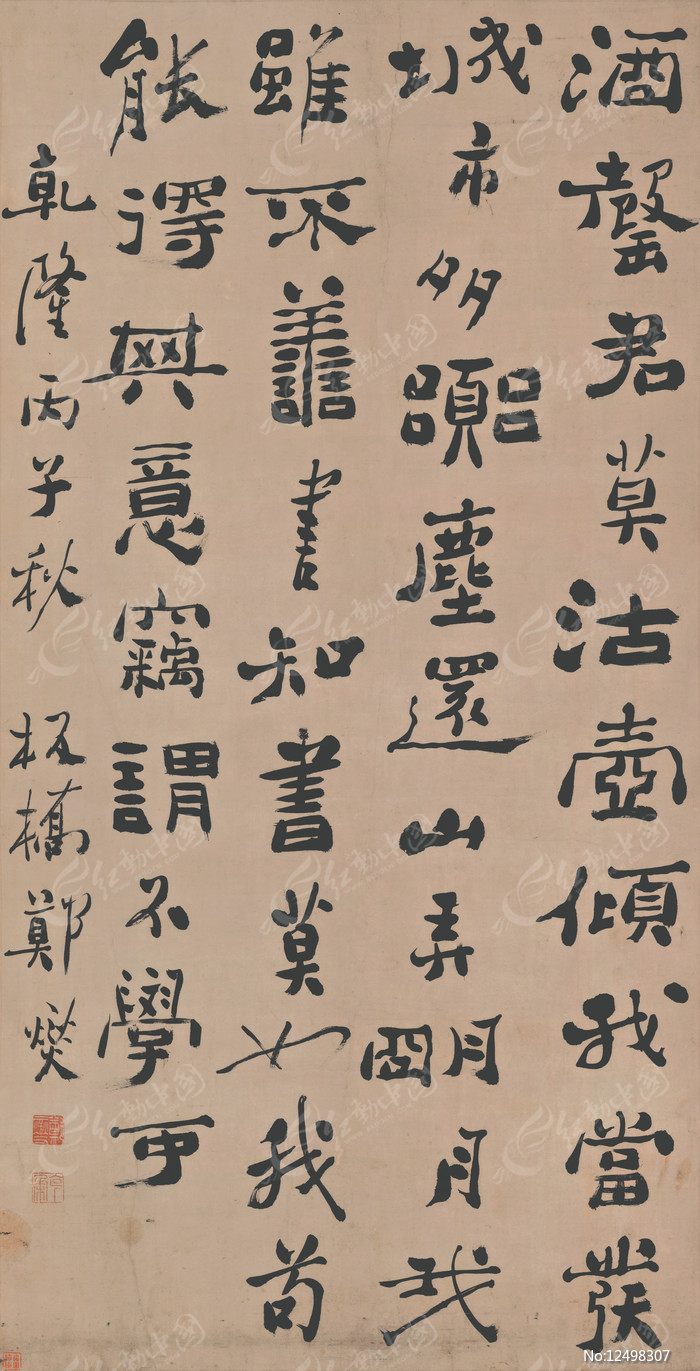 酒罄君莫沽壺傾我當發
城市多囂塵還山弄朙月我
雖不譱書知書莫如我苟
能得其意竊謂不學可
乾隆丙子秋 板橋鄭燮
红动中国
No:12498307